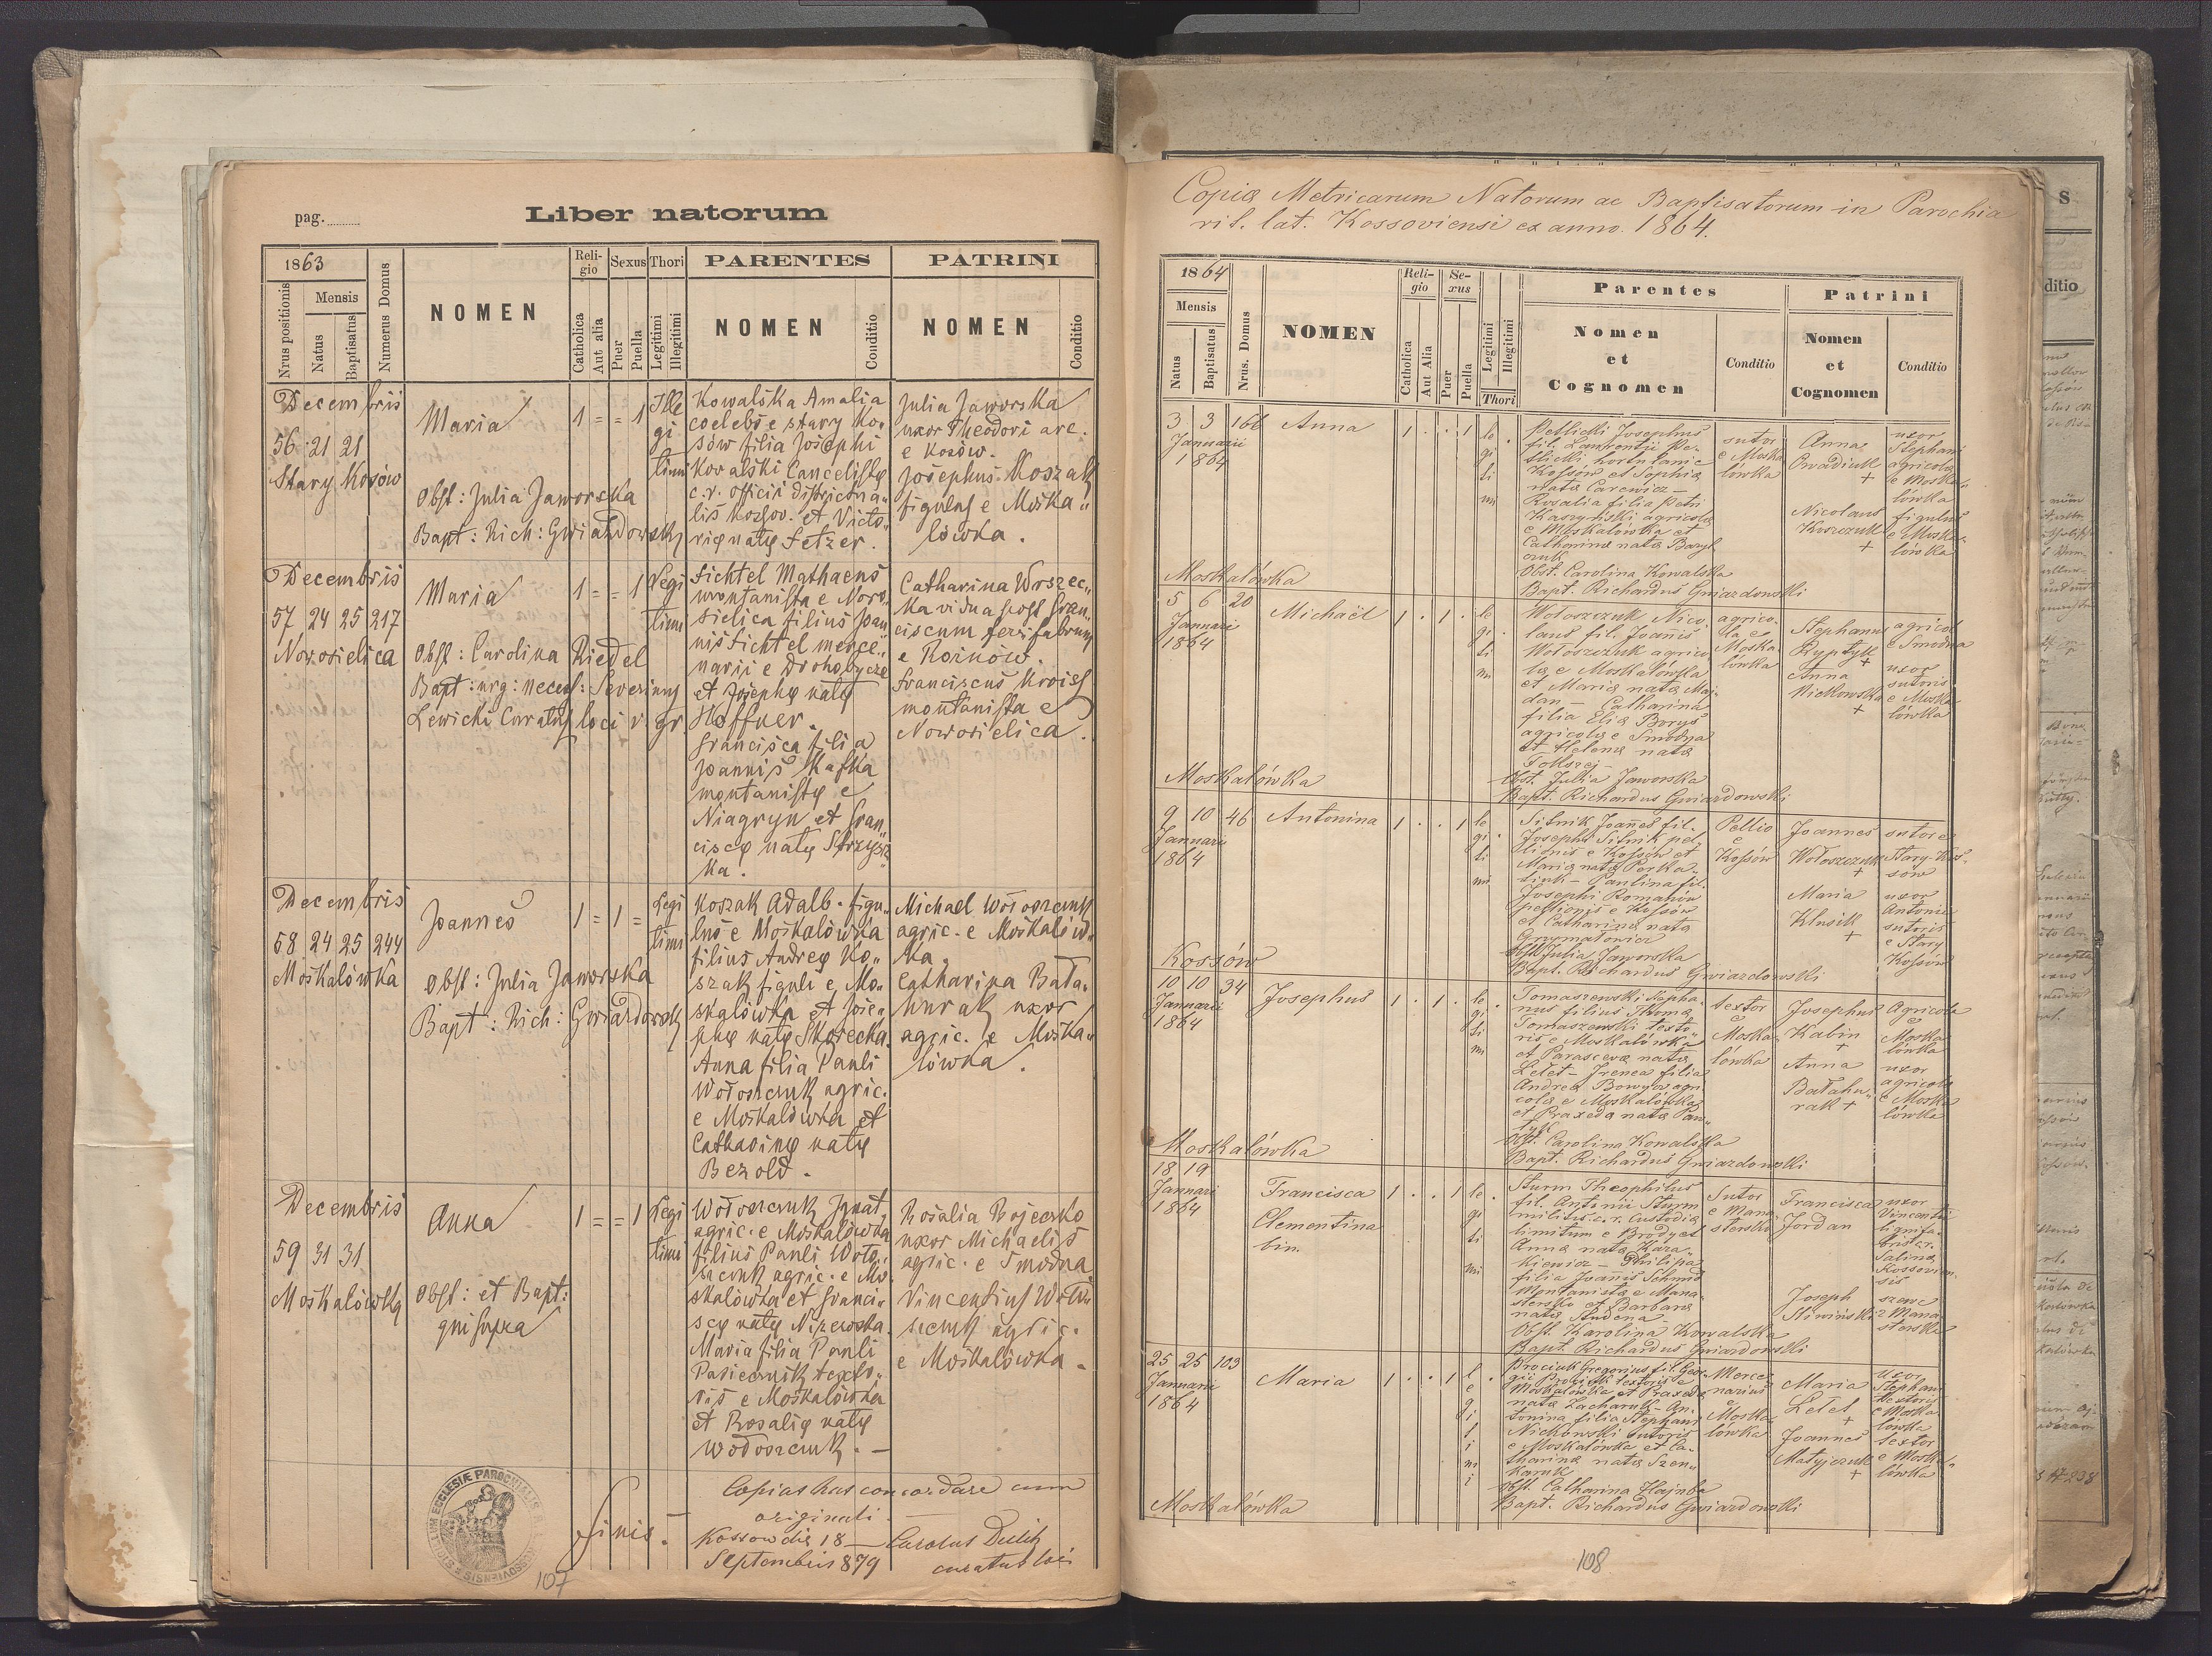 pag.
Liber natorum
1863
Nrus positionis
Mensis
Natus
Baptisatus
Numerus Domus
NOMEN
Religio
Catholica
Aut alia
Sexus
Puer
Puella
Thori
Legitimi
Illegitimi
PARENTES
NOMEN
Conditio
PATRINI
NOMEN
Conditio
Decembris
56 21 21
Stary Kosów
Maria
Obst: Julia Jaworska
Bapt: Rich: Gwiazdowski
1 = = 1
Ille
gi
timi
Kowalska Amalia
coelebs e stary Ko„
sów filia Josephi
Kowalski Cancelistę
c. r. officii districtua„
lis Kossov. et Victo„
rię natę Fetzer.
Julia Jaworska
uxor Theodori arc.
e Kosów.
Josephus Koszak
figulus e Moska„
lówka.
Decembris
57 24 25 217
Nowosielica
Maria
Obst: Carolina Riedel
Bapt: urg: necess: Severinus
Lewicki Curatus loci r. gr.
1 = = 1
Legi
timi
Fichtel Mathaeus
montanista e Nowo„
sielica filius Joan
nis Fichtel merce„
narii e Drohobycze
et Josephę natę
Hoffner.
Francisca filia
Joannis Kafka
montanistę e
Niagryn et Fran„
ciscę natę
ka.
Catharina Woszec„
ka vidua post Fran„
ciscum
e Rożnów.
Franciscus Kroiss
montanista e
Nowosielica.
Decembris
58 24 25 244
Moskalówka
Joannes
Obst: Julia Jaworska
Bapt: Rich: Gwiazdowski
1 = 1 =
Legi
timi
Koszak Adalb. figu„
lus e Moskalówka
filius Andreę Ko„
szak figuli e Mo„
skalówka et Jose„
phę natę Skorecka.
Anna filia Pauli
Wołoszczuk agric.
e Moskalówka et
Catharinę natę
Bezold.
Michael Wołoszczuk
agric. e Moskalów„
ka.
Catharina Bała„
hurak uxor
agric. e Moska„
lówka.
Decembris
59 31 31
Moskalówka
Anna
Obst: et Bapt:
qui supra
1 = = 1
Legi
timi
Wołoszczuk Ignat,
agric. e Moskalówka
filius Pauli Woło„
szczuk agric. e Mo„
skalówka et Franci„
scę natę Nizewska.
Maria filia Pauli
Pasiecznik texto„
ris e Moskalówka
et Rosalię natę
Wołoszczuk. —
Rosalia Rojeczko
uxor Michaelis
agric. e Smodna.
Vincentius Woło„
szczuk agric.
e Moskalówka.
SIGILLUM ECCLESIÆ PAROCHIALIS KOSSOVIENSIS
Finis. —
Copias has concordare cum
originali.
Kossow die 18 — Carolus Delih
Septembris 879 curatus loci
107
Copia Metricarum Natorum ac Baptisatorum in Parochia
rit. lat. Kossoviensi ex anno 1864.
1864
Mensis
Natus
Baptisatus
Nrus. Domus
NOMEN
Religio
Catholica
Aut Alia
Sexus
Puer
Puella
Legitimi
Illegitimi
Thori
Parentes
Nomen
et
Cognomen
Conditio
Patrini
Nomen
et
Cognomen
Conditio
3 3 166
Januarii
1864
Moskalówka
Anna
1 . . 1
le
gi
ti
mi
Petlicki Josephus
fil. Laurentii Pe-
tlicki hortulani e
Kossów et Sophia
nata Carewicz —
Rosalia filia Petri
Kaszyński agricola
e Moskalówka et
Catharina nata Baryl
czuk
Obst. Carolina Kowalska
Bapt. Richardus Gwiazdowski
sutor
e Moska
lówka
Anna
Owadiuk
+
Nicolaus
Kuszczuk
+
uxor
Stephani
agricola
e Moska„
lówka
figulus
e Moska
lówka
5 6 20
Januarii
1864
Moskalówka
Michaël
1 . 1 .
le
gi
ti
mi
Wołoszczuk Nico„
laus fil. Joanis
Wołoszczuk agrico
la e Moskalówka
et Maria nata Maj-
dan — Catharina
filia Elia Borys
agricola e Smodna
et Helena nata
Tokszej —
Obst. Julia Jaworska
Bapt. Richardus Gwiazdowski
agrico-
la e
Moska
lówka
Stephanus
Ryptyk
+
Anna
Nickowska
+
agricola
e Smodna
uxor
sutoris
e Moska
lówka
9 10 46
Januarii
1864
Kossów
Antonina
1 . . 1
le
gi
ti
mi
Sitnik Joañes fil.
Josephi Sitnik pel„
lionis e Kossów et
Maria nata Porka„
— Paulina fil.
Josephi Romanów
pellionis e Kossów
et Catharina nata
Grymatowicz
Obst. Julia Jaworska
Bapt. Richardus Gwiazdowski
Pellio
e
Kossów
Joannes
Wołoszczuk
+
Maria
Klusik
+
sutor e
Stary-Kos-
sów
uxor
Antonii
sutoris
e Stary
Kossów
10 10 34
Januarii
1864
Moskalówka
Josephus
1 . 1 .
le
gi
ti
mi
Tomaszewski Stepha-
nus filius Thoma
Tomaszewski texto„
ris e Moskalówka
et Parasceva nata
Letet — Irenea filia
Andrea Bowycz agri
cola e Moskalówka
et Praxeda nata Paw„
łyk
Obst. Carolina Kowalska
Bapt. Richardus Gwiazdowski
textor
e
Moska
lówka
Josephus
Kabin
+
Anna
Bałahu„
rak +
Agricola
e
Moska
lówka
uxor
agricola
e Moska
lówka
18 19
Januarii
1864
Francisca
Clementina
bin.
1 . . 1
le
gi
ti
mi
Sturm Theophilus
fil. Antonii Sturm
militis c. r. Custodia
limitum e Brody et
Anna nata Kara„
kiewicz — Philipa
filia Joanis Schmid
Montanista e Mana„
stersko et Barbara
nata Audena
Obst. Karolina Kowalska
Bapt. Richardus Gwiazdowski
Sutor
e Mana
stersko
Francisca
Jordan
Joseph
Sliwiński
uxor
Vincentii
lignifa-
bris c. r.
Salina
Kossovien-
sis
szewc
z Mana
sterska
25 25 103
Januarii
1864
Moskalówka
Maria
1 . . 1
l
e
g
i
t
i
m
i
Prociuk Gregorius fil. Geor-
gii Prociuk textoris e
Moskalówka et Praxeda
nata Zacharuk — An„
tonina filia Stephani
Nickowski sutoris
e Moskalówka et Ca-
tharina nata Szen„
karuk
Obst. Catharina Hajnbe
Bapt. Richardus Gwiazdowski
Merce
narius
e
Moska
lówka
Maria
Letet
+
Joannes
Matyjczuk
+
Uxor
Stephani
textoris
e Moska
lówka
textor
e Moska„
lówka
108
S
ditio